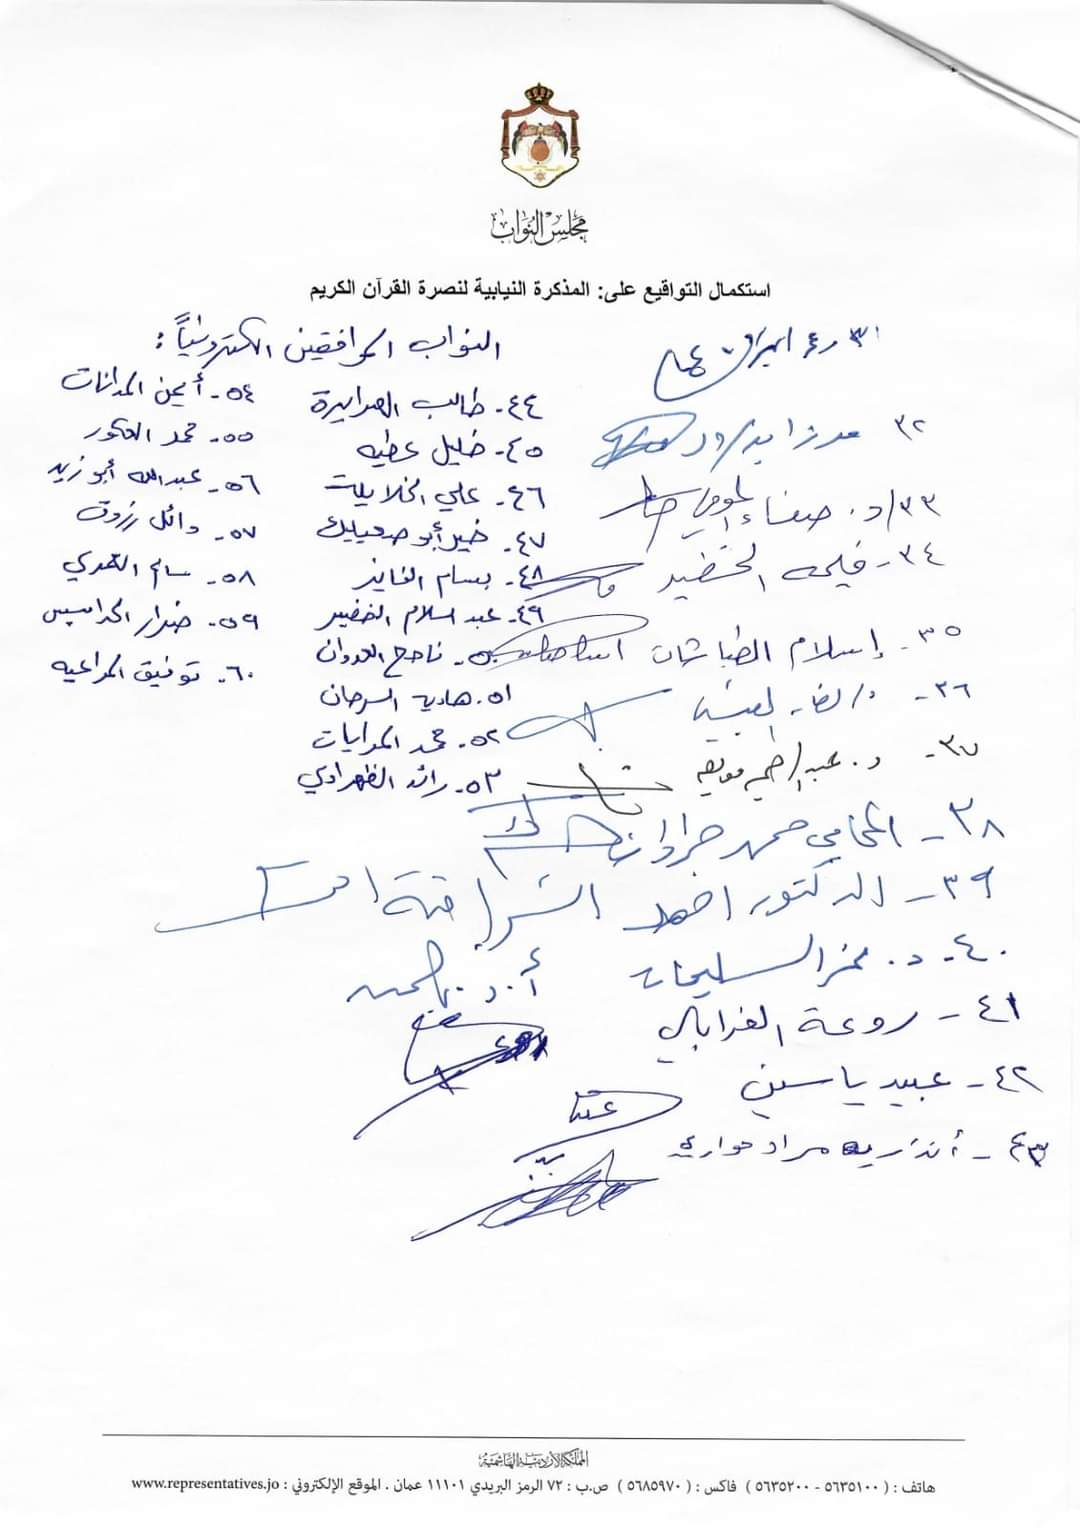 مجلس النواب
استكمال التواقيع على: المذكرة النيابية لنصرة القرآن الكريم
٣١
٣٢
٣٣/ د. صفاء المومني
٣٤- فليحه الخضير
٣٥- إسلام الطباشات
٣٦-
٣٧- د. عبد الرحيم
٣٨- المحامي
٣٩- الدكتور احمد الشرايقة
٤٠- د. السليحات
٤١- روعة الغرابلي
٤٢- عبيد ياسين
٤٣- أندريه مراد حواري
النواب الموافقين الكترونياً:
٤٤- طالب الصرايرة
٤٥- خليل عطيه
٤٦- علي الخلايلة
٤٧- خير أبو صعيليك
٤٨- بسام الفايز
٤٩- عبد السلام الخضير
٥٠- ناجح العدوان
٥١- هادية السرحان
٥٢- محمد المرايات
٥٣- رائد الظهراوي
٥٤- أيمن المدانات
٥٥- محمد العكور
٥٦- عبدالله أبو زيد
٥٧- وائل رزوق
٥٨- سالم العمري
٥٩- ضرار الحراسيس
٦٠- توفيق المراعيه
المملكة الأردنية الهاشمية
هاتف : ( ٥٦٣٥١٠٠ - ٥٦٣٥٢٠٠ ) فاكس : ( ٥٦٨٥٩٧٠ ) ص.ب : ٧٢ الرمز البريدي ١١١٠١ عمان . الموقع الإلكتروني : www.representatives.jo